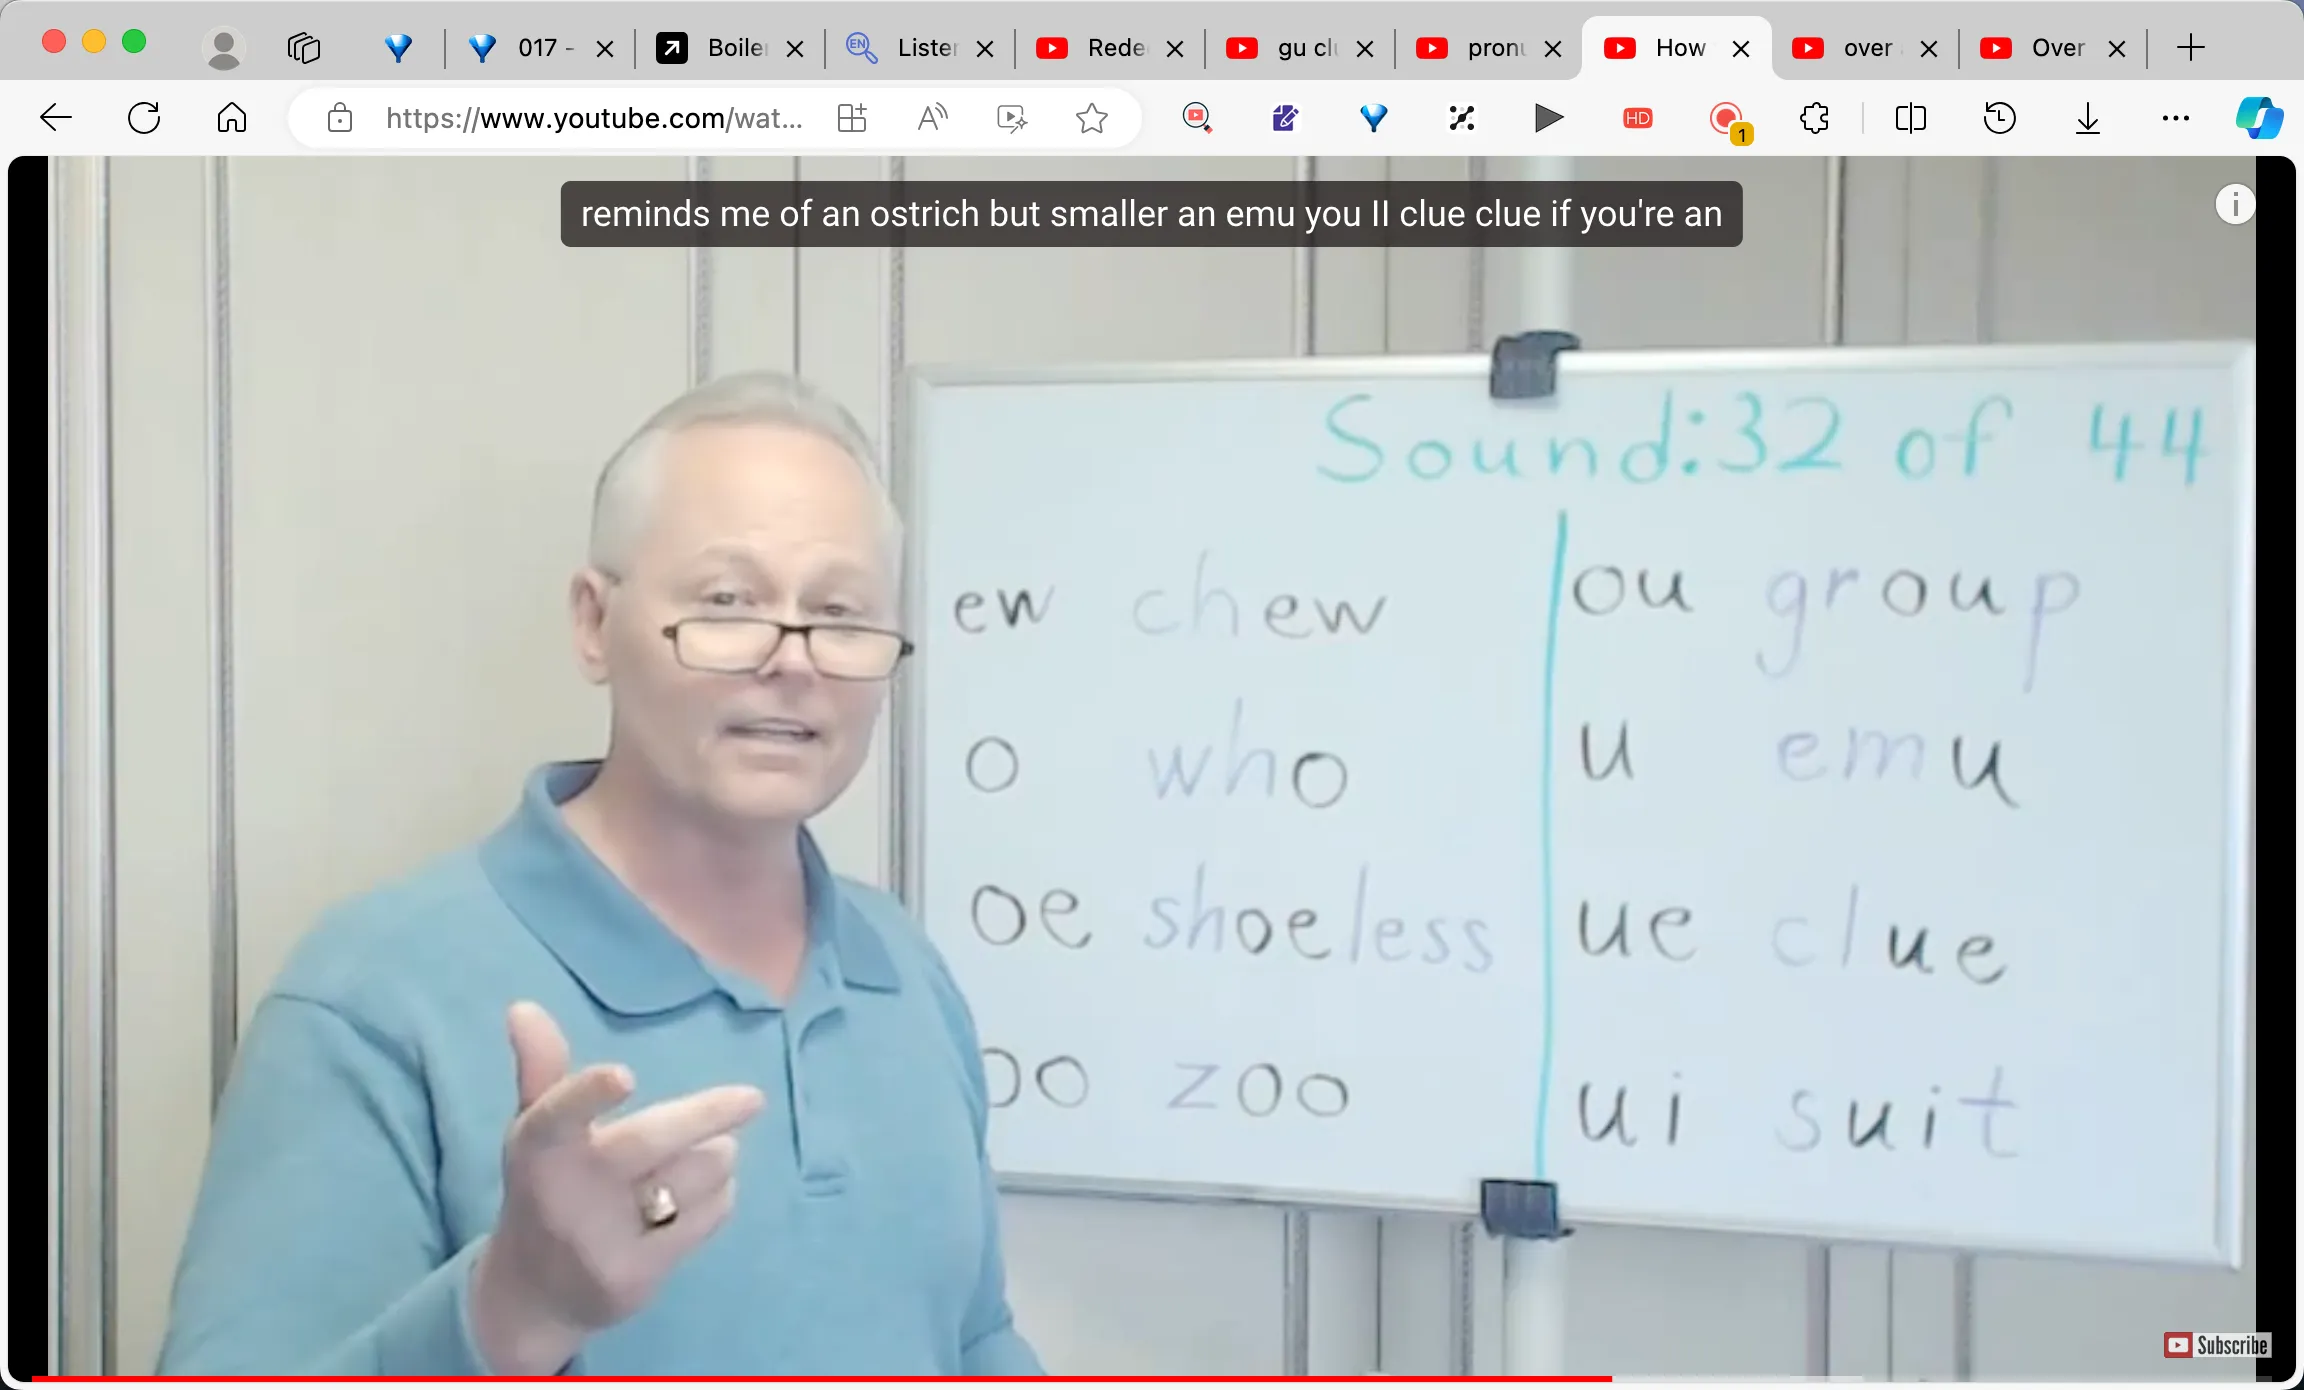 017 -
Boiler
Lister
Rede
gu cl
pron
How
over
Over
https://www.youtube.com/wat...
HD
1
reminds me of an ostrich but smaller an emu you II clue clue if you're an
Sound:32 of 44
ew chew
o who
oe shoeless
oo zoo
ou group
u emu
ue clue
ui suit
Subscribe